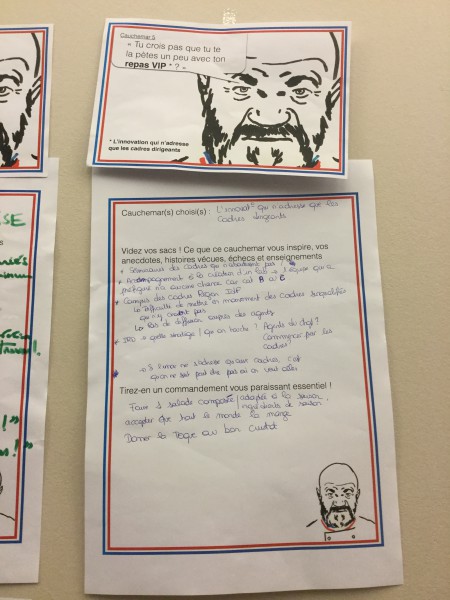 Cauchemar 5
« Tu crois pas que tu te
la pètes un peu avec ton
repas VIP * ? »
* L'innovation qui n'adresse
que les cadres dirigeants
Cauchemar(s) choisi(s) : L'innovat° qui n'adresse que les
cadres dirigeants
Videz vos sacs ! Ce que ce cauchemar vous inspire, vos
anecdotes, histoires vécues, échecs et enseignements
* Séminaires des cadres qui n'aboutissent pas !
* Accompagnement à la création d'un lab → 1 équipe qui a
n'a aucune chance car
* Campus des cadres Région IDF
↳ Difficulté de mettre en mouvement des cadres
qui n'y croient pas
↳ Pas de diffusion auprès des agents
* quelle stratégie ? qui on traite ? Agents du
Commencer par les
cadres ?
* Si on ne s'adresse qu'aux cadres, c'est
qu'on ne sait peut être pas où on veut aller
Tirez-en un commandement vous paraissant essentiel !
Faire 1 salade composée / adaptée à la saison,
ingrédients de saison
accepter que tout le monde la mange
Donner la toque au bon cuistot
SE
!"